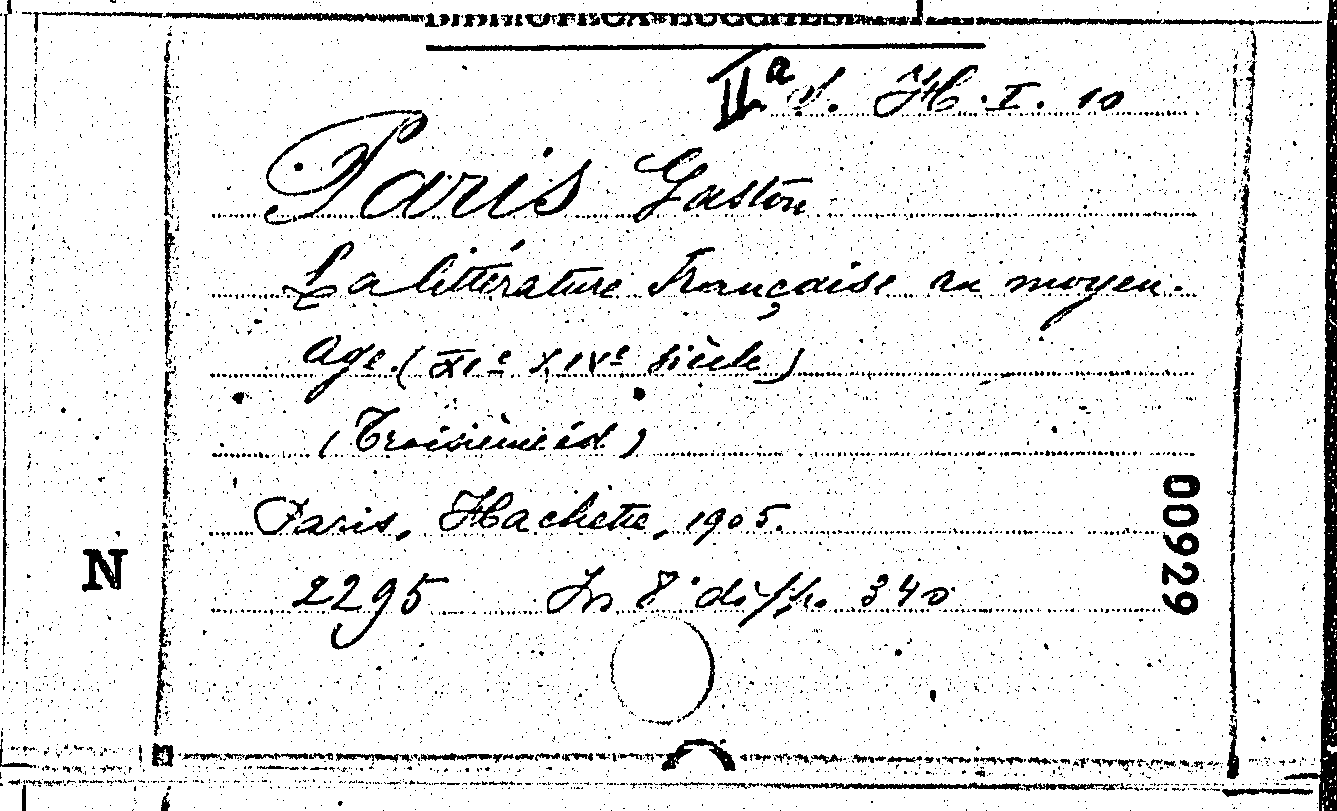 IIa S. H. I. 10
Paris Gaston
La littérature française au moyen-
age. (XIe XIVe siècle)
(Troisième éd)
Paris, Hachette, 1905.
2295 In 8° di pp. 340
00929
N